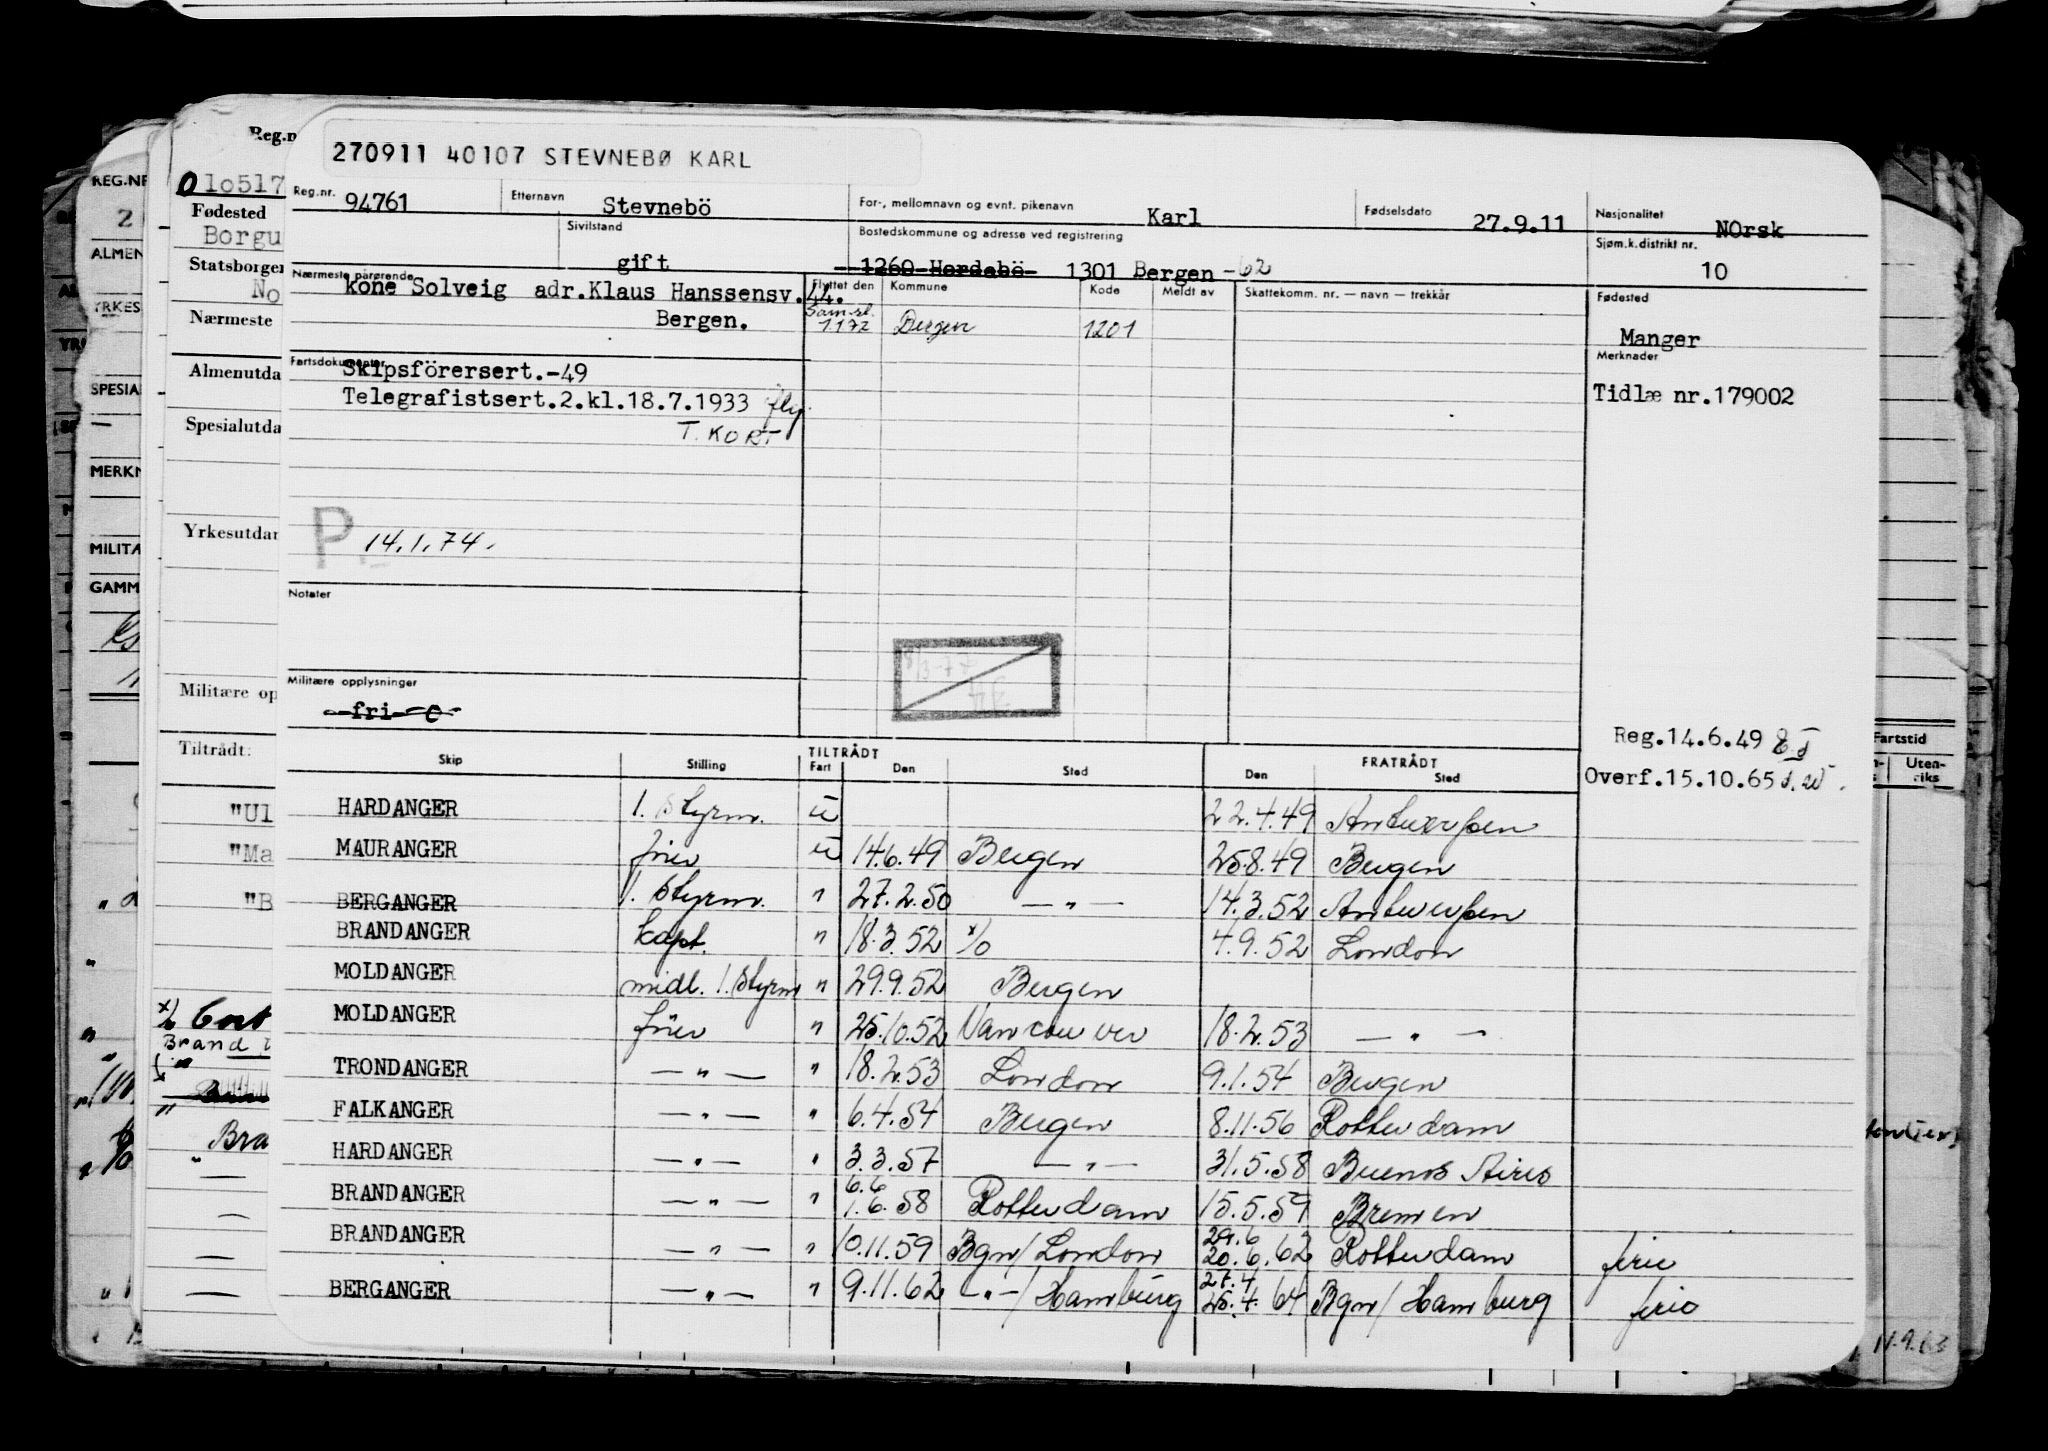 Reg.n
270911 40107 STEVNEBØ KARL
REG.NR
lo517
Reg.nr. 94761 Etternavn Stevnebö For-, mellomnavn og evnt. pikenavn Karl Fødselsdato 27.9.11 Nasjonalitet NOrsk
Fødested
Borgu
Sivilstand gift Bostedskommune og adresse ved registrering 1260 Herdabö 1301 Bergen -62 Sjøm.k.distrikt nr. 10
ALMEN
Statsborger
No
Nærmeste pårørende kone Solveig adr.Klaus Hanssensv.44. Flyttet den Kommune Kode Meldt av Skattekomm. nr. — navn — trekkår Fødested
Bergen. 1.1 72 Bergen 1201 Manger
YRKES
Nærmeste
Merknader
Fartsdokumenter Skipsförersert.-49
Almenutda
Telegrafistsert.2.kl.18.7.1933 Tidlæ nr.179002
SPESIA
T. KORT
Spesialutda
MERKN
Yrkesutdan
P. 14.1.74.
MILITÆ
GAMM
Notater
Militære op
Militære opplysninger
fri
Reg.14.6.49
Overf.15.10.65
Tiltrådt:
Fartstid
Uten-
riks
Skip Stilling TILTRÅDT Fart Den Sted FRATRÅDT Den Sted
"Ul
HARDANGER 1. Styrm. u 22.4.49 Antwerpen
"Ma
MAURANGER fører u 14.6.49 Bergen 25.8.49 Bergen
"B
BERGANGER 1. Styrm. " 27.2.50 — " — 14.3.52 Antwerpen
BRANDANGER kapt. " 18.3.52 x/o 4.9.52 London
MOLDANGER midl. 1. Styrm " 29.9.52 Bergen
MOLDANGER fører " 25.10.52 Vancouver 18.2.53 — " —
Brand
TRONDANGER — " — " 18.2.53 London 9.1.54 Bergen
FALKANGER — " — " 6.4.54 Bergen 8.11.56 Rotterdam
Bra
HARDANGER — " — " 3.3.57 — " — 31.5.58 Buenos Aires
6.6
BRANDANGER — " — " 1.6.58 Rotterdam 15.5.59 Bremen
29.6
BRANDANGER — " — " 10.11.59 Bgn/London 20.6.62 Rotterdam ferie
27.4
BERGANGER — " — " 9.11.62 — " —/Hamburg 25.4.64 Bgn/Hamburg ferie
11.9.63